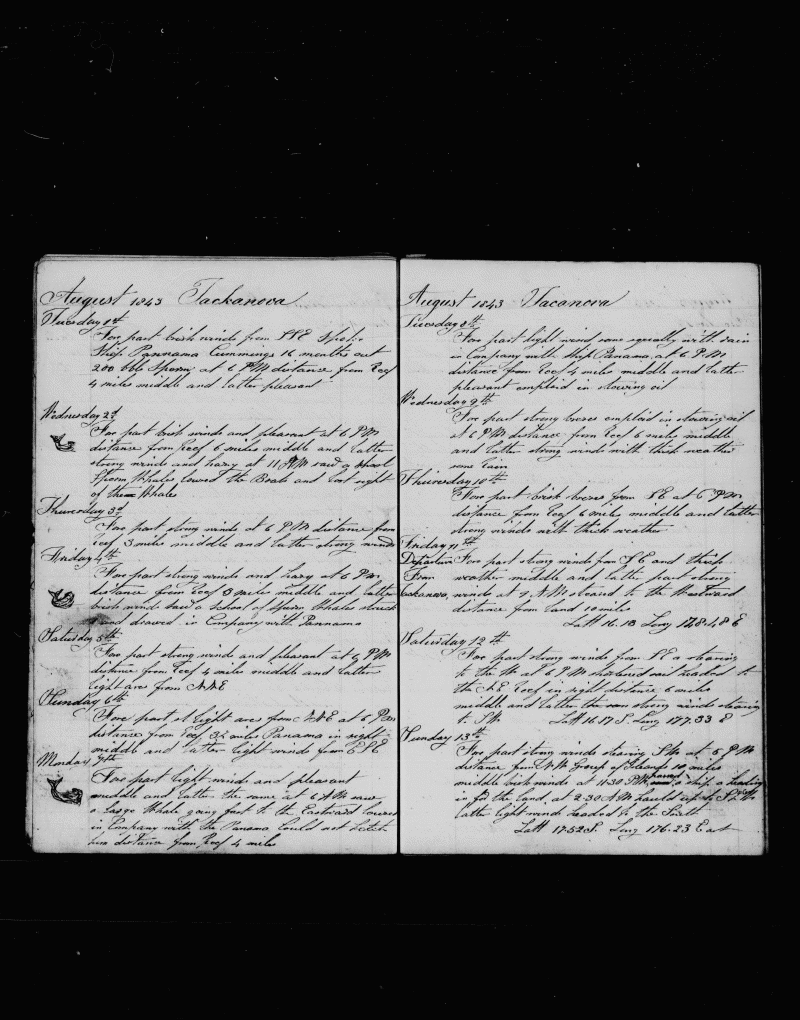 August 1843 Tackanova
Tuesday 1st
Fore part brisk winds from SSE Spoke
Ship Pannama Cummings 16 months out
200 bbls Sperm at 6 PM distance from Reef
4 miles middle and latter pleasant
Wednesday 2d
Fore part brisk winds and pleasant at 6 PM
distance from Reef 6 miles middle and latter
strong winds and hazy at 11 AM saw a shoal
Sperm Whales lowed the Boats and lost sight
of the Whales
Thursday 3d
Fore part strong winds at 6 PM distance from
Reef 3 miles middle and latter strong winds
Friday 4th
Fore part strong winds and hazy at 6 PM
distance from Reef 3 miles middle and latter
brisk winds saw a School of Sperm Whales struck
and drawed in Company with Pannama
Saturday 5th
Fore part strong winds and pleasant at 6 PM
distance from Reef 4 miles middle and latter
light ares from NNE
Sunday 6th
Fore part light ares from NNE at 6 PM
distance from Reef 3½ miles Panama in sight
middle and latter light winds from ESE
Monday 7th
Fore part light winds and pleasant
middle and latter the same at 6 AM saw
a large Whale going fast to the Eastward lowered
in Company with the Panama Could not fetch
him distance from Reef 4 miles
August 1843 Tacanova
Tuesday 8th
Fore part light wind some squally with rain
in Company with ship Panama at 6 PM
distance from Reef 4 miles middle and latter
pleasant emplaid in stowing oil
Wednesday 9th
Fore part strong brezes emplaid in stowing oil
at 6 PM distance from Reef 6 miles middle
and latter strong winds with thick weather
some rain
Thursday 10th
Fore part brisk brezes from SE at 6 PM
distance from Reef 6 miles middle and latter
strong winds with thick weather
Friday 11th
Departure Fore part strong winds from SE and thick
From weather middle and latter part strong
Tackanova winds at 7 AM steared to the Westward
distance from Land 10 miles
Latt 16.13 Long 178.48 E
Saturday 12th
Fore part strong winds from SE a stearing
to the W at 6 PM shortned sail headed to
the NE Reef in sight distance 6 miles
middle and latter strong winds stearing
to SW Latt 16.17 S. Long 177.33 E
Sunday 13th
Fore part strong winds stearing SW at 6 PM
distance from NW Group of Islands 10 miles
middle brisk winds at 11-30 PM a ship a heading
in for the Land, at 2-30 AM hauld up to SSW
latter light winds headed to the South
Latt 17.52 S. Long 176.23 East